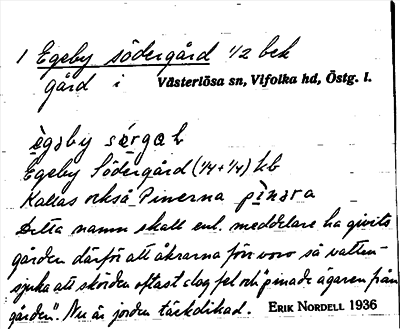 1 Egeby södergård 1/2 bek
gård i Västerlösa sn, Vifolka hd, Östg. l.
ègəby sə́rgaḷ
Egeby Södergård (1/4+1/4) kb
Kallas också Pinerna pìnəra
Detta namn skall enl. meddelare ha givits
gården därför att åkrarna förr voro så vatten-
sjuka att skörden oftast slog fel och "pinade ägaren från
gården". Nu är jorden täckdikad. ERIK NORDELL 1936